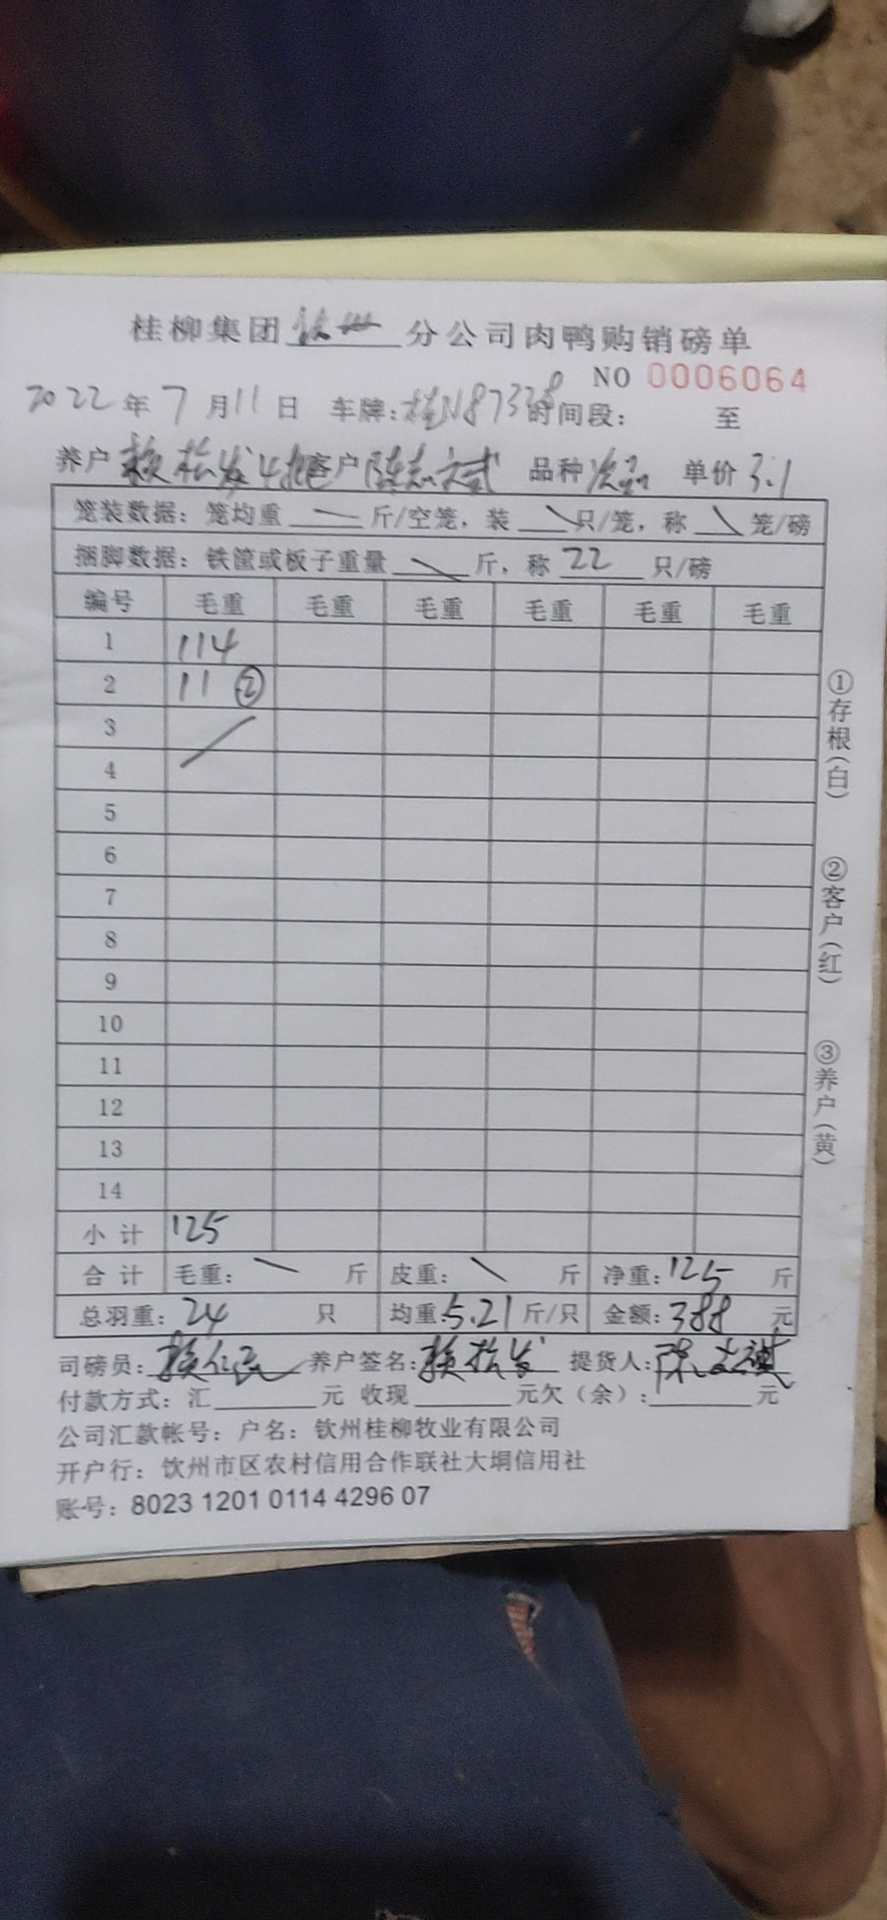 桂柳集团钦州分公司肉鸭购销磅单
NO 0006064
2022年7月11日 车牌:桂N87328时间段: 至
养户 赖松发4批客户 陈志斌 品种次品 单价3.1
笼装数据:笼均重 斤/空笼,装 只/笼,称 笼/磅
捆脚数据:铁筐或板子重量 斤,称22只/磅
编号 毛重 毛重 毛重 毛重 毛重 毛重
1 114
2 11 ②
3
4
5
6
7
8
9
10
11
12
13
14
小计 125
合计 毛重: 斤 皮重: 斤 净重:125 斤
总羽重:24 只 均重:5.21斤/只 金额:388 元
司磅员: 养户签名:赖松发 提货人:
付款方式:汇 元 收现 元欠(余): 元
公司汇款帐号:户名:钦州桂柳牧业有限公司
开户行:钦州市区农村信用合作联社大垌信用社
账号:8023 1201 0114 4296 07
①存根(白)
②客户(红)
③养户(黄)